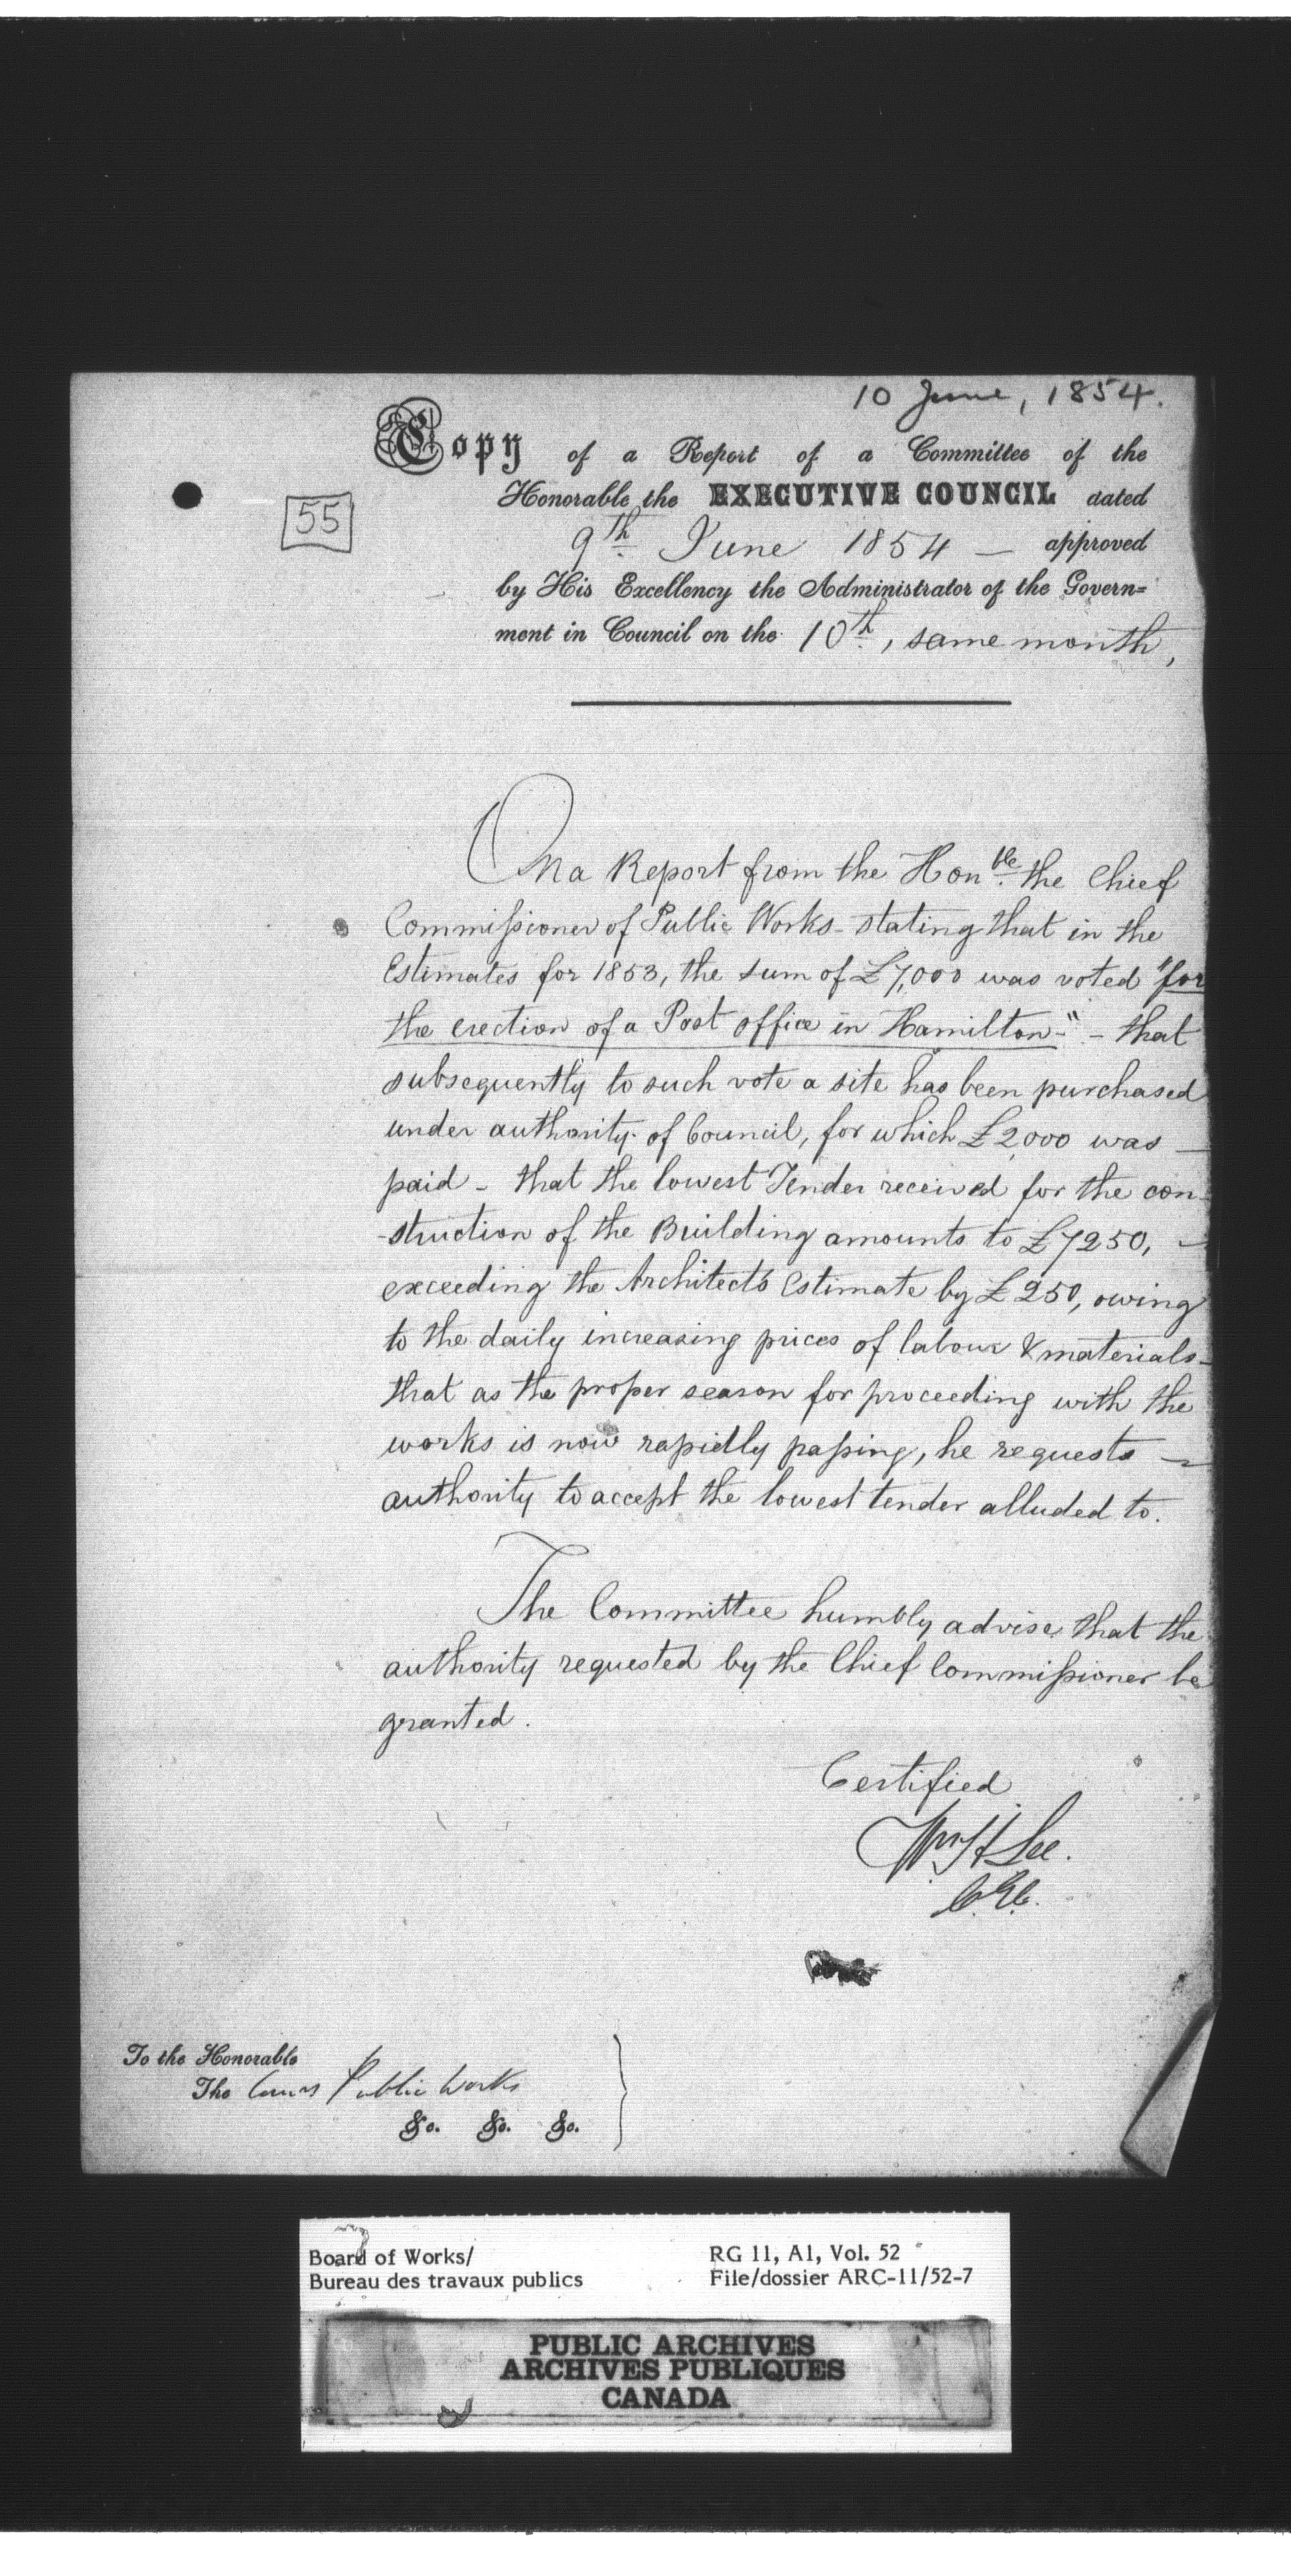 10 June, 1854.
Copy of a Report of a Committee of the
Honorable the EXECUTIVE COUNCIL dated
55
9th June 1854 — approved
by His Excellency the Administrator of the Govern=
ment in Council on the 10th, same month,
On a Report from the Honble the Chief
Commissioner of Public Works - stating that in the
Estimates for 1853, the sum of £7,000 was voted "for
the erection of a Post office in Hamilton-" - that
subsequently to such vote a site has been purchased
under authority of Council, for which £2,000 was —
paid - that the lowest Tender received for the con-
-struction of the Building amounts to £7250, —
exceeding the Architect's Estimate by £250, owing
to the daily increasing prices of labour & materials-
that as the proper season for proceeding with the
works is now rapidly passing, he requests —
authority to accept the lowest tender alluded to.
The Committee humbly advise that the
authority requested by the Chief Commissioner be
granted.
Certified
Wm H Lee.
C.E.C.
To the Honorable
The Comrs Public Works
&c. &c. &c.
Board of Works/
Bureau des travaux publics
RG 11, A1, Vol. 52
File/dossier ARC-11/52-7
PUBLIC ARCHIVES
ARCHIVES PUBLIQUES
CANADA